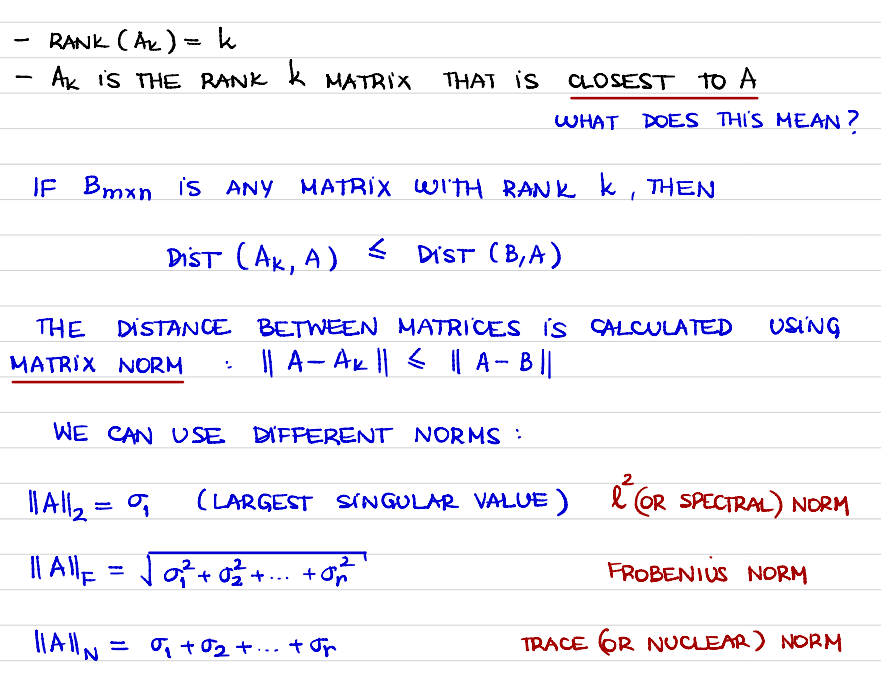 - RANK (Aₖ) = k
- Aₖ IS THE RANK k MATRIX THAT IS CLOSEST TO A
WHAT DOES THIS MEAN?
IF Bₘₓₙ IS ANY MATRIX WITH RANK k, THEN
DIST (Aₖ, A) ≤ DIST (B, A)
THE DISTANCE BETWEEN MATRICES IS CALCULATED USING
MATRIX NORM : ‖ A - Aₖ ‖ ≤ ‖ A - B ‖
WE CAN USE DIFFERENT NORMS :
‖A‖₂ = σ₁ (LARGEST SINGULAR VALUE) ℓ² (OR SPECTRAL) NORM
‖A‖_F = √(σ₁² + σ₂² + ... + σᵣ²) FROBENIUS NORM
‖A‖_N = σ₁ + σ₂ + ... + σᵣ TRACE (OR NUCLEAR) NORM